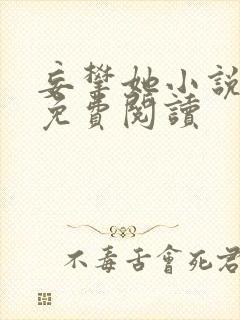 妄攀她小說
免費閱讀
不毒舌會死君